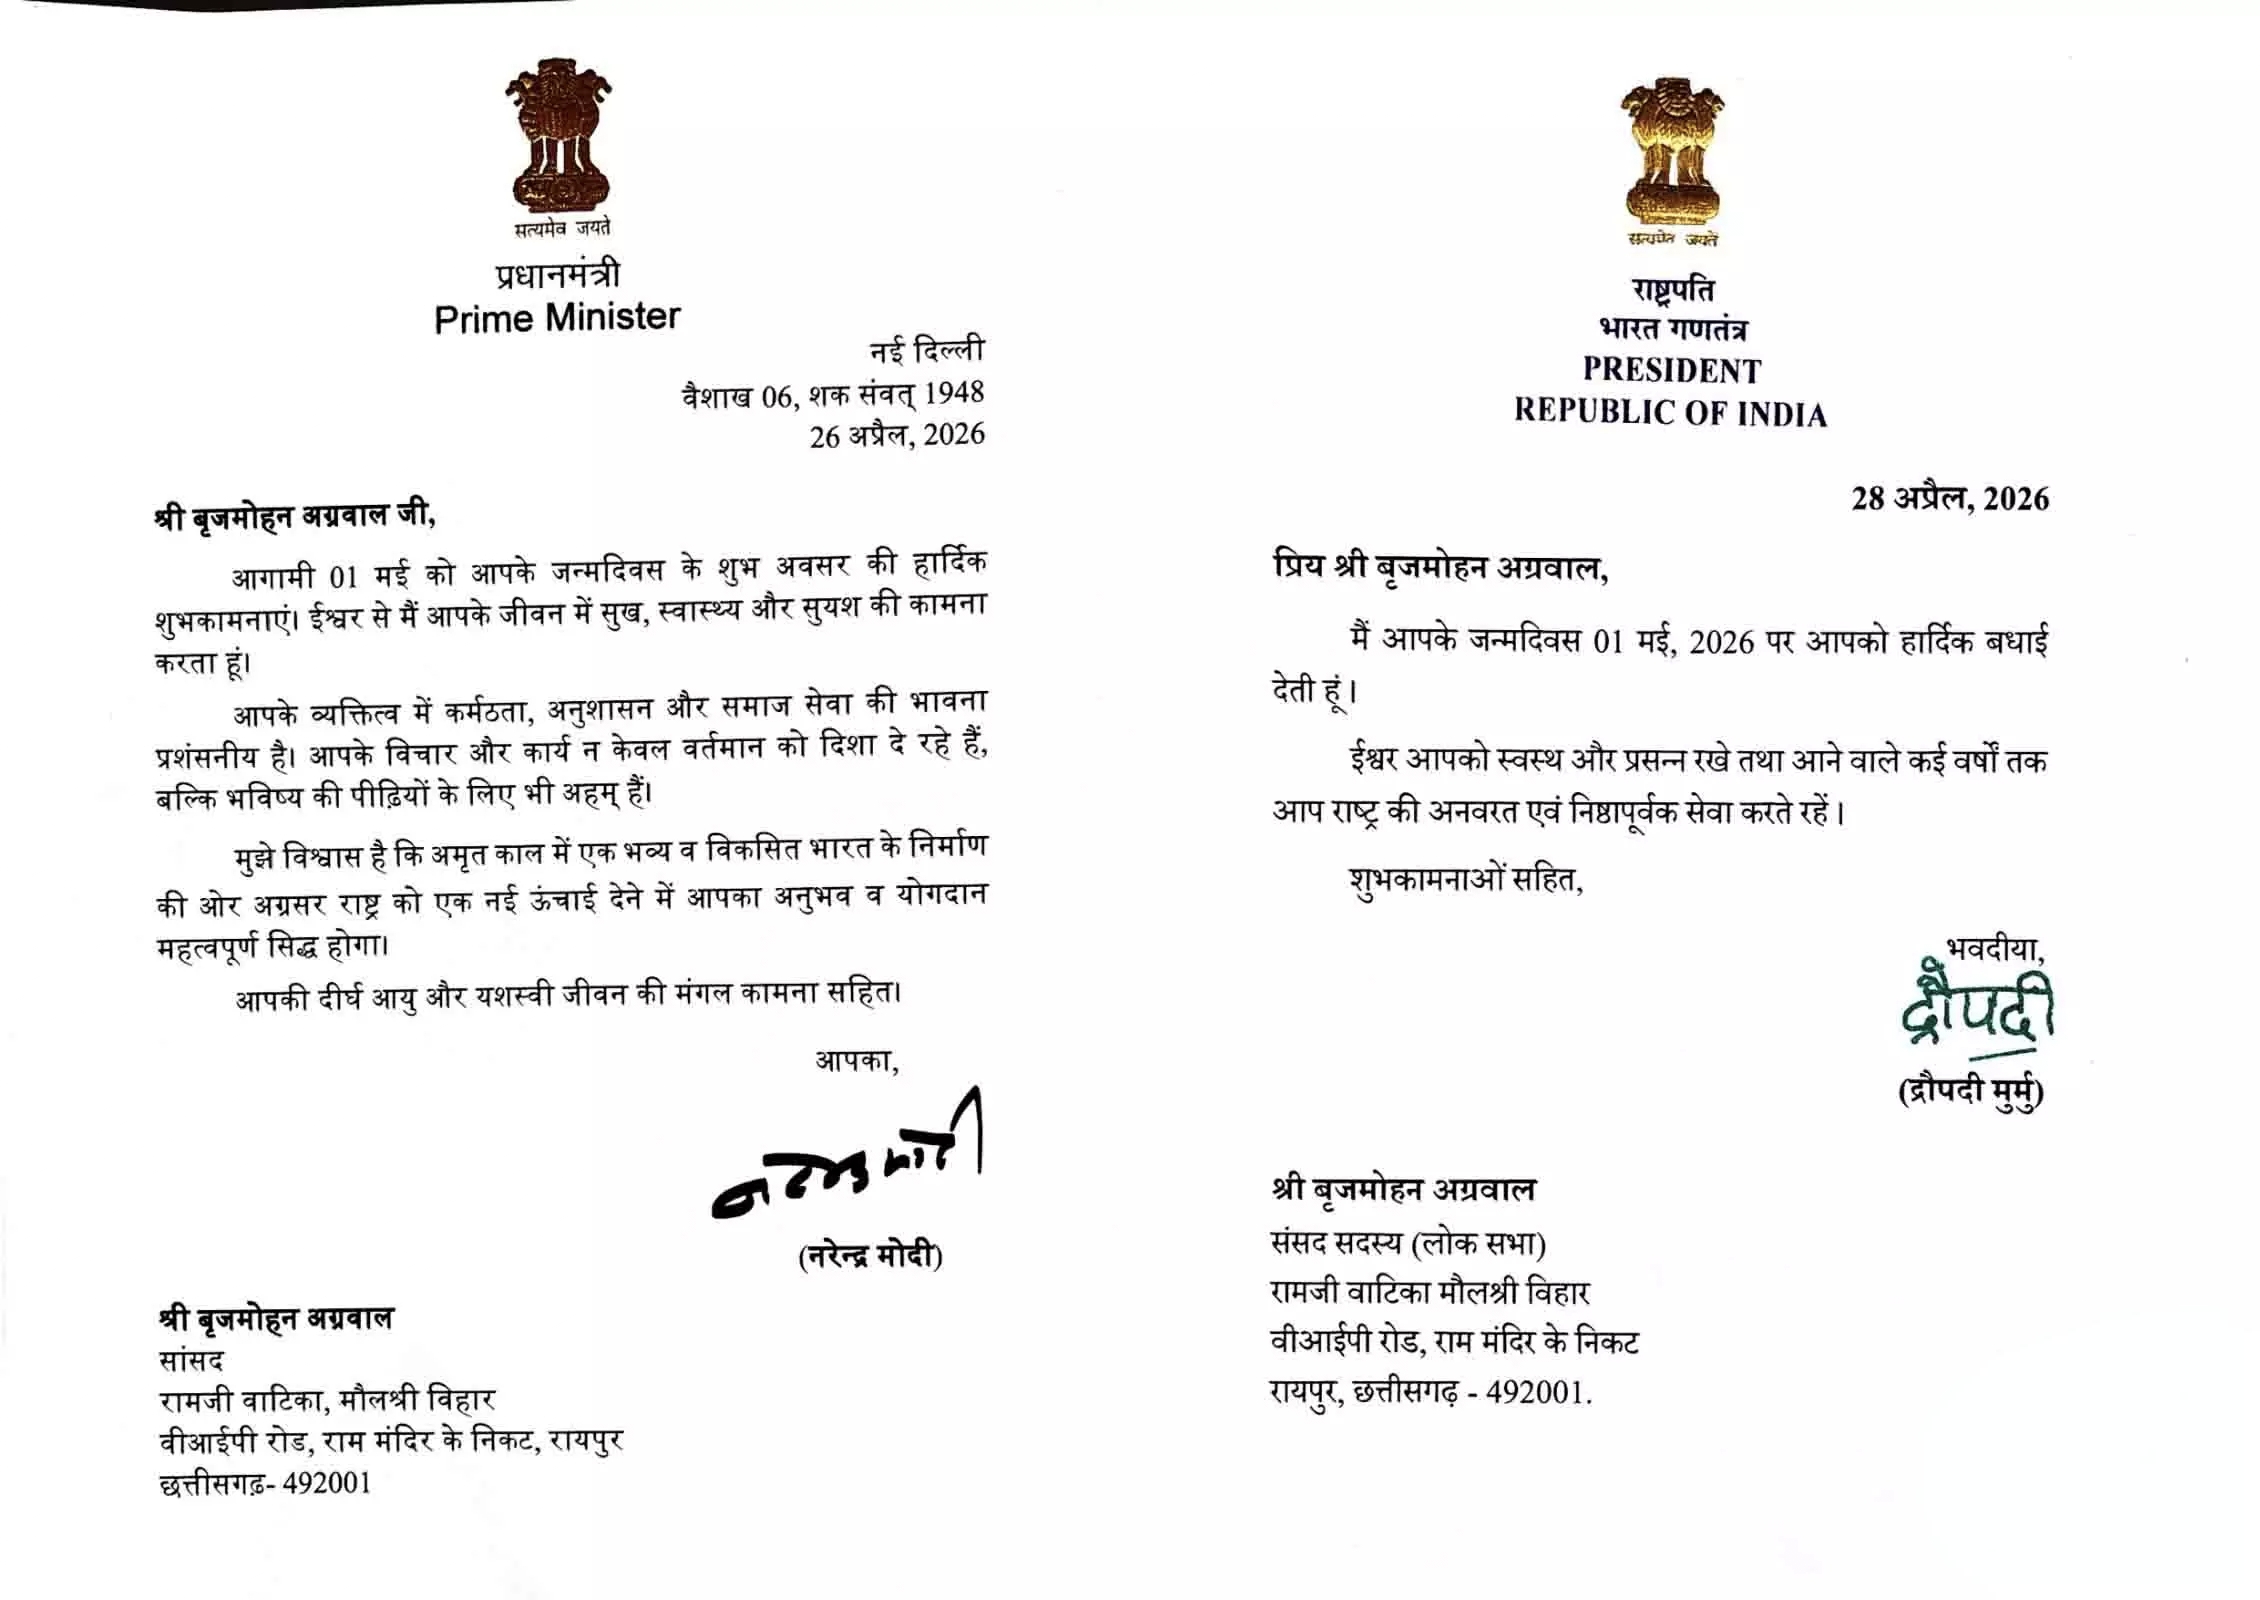 सत्यमेव जयते
प्रधानमंत्री
Prime Minister
नई दिल्ली
वैशाख 06, शक संवत् 1948
26 अप्रैल, 2026
श्री बृजमोहन अग्रवाल जी,
आगामी 01 मई को आपके जन्मदिवस के शुभ अवसर की हार्दिक
शुभकामनाएं। ईश्वर से मैं आपके जीवन में सुख, स्वास्थ्य और सुयश की कामना
करता हूं।
आपके व्यक्तित्व में कर्मठता, अनुशासन और समाज सेवा की भावना
प्रशंसनीय है। आपके विचार और कार्य न केवल वर्तमान को दिशा दे रहे हैं,
बल्कि भविष्य की पीढ़ियों के लिए भी अहम् हैं।
मुझे विश्वास है कि अमृत काल में एक भव्य व विकसित भारत के निर्माण
की ओर अग्रसर राष्ट्र को एक नई ऊंचाई देने में आपका अनुभव व योगदान
महत्वपूर्ण सिद्ध होगा।
आपकी दीर्घ आयु और यशस्वी जीवन की मंगल कामना सहित।
आपका,
नरेन्द्र मोदी
(नरेन्द्र मोदी)
श्री बृजमोहन अग्रवाल
सांसद
रामजी वाटिका, मौलश्री विहार
वीआईपी रोड, राम मंदिर के निकट, रायपुर
छत्तीसगढ़- 492001
सत्यमेव जयते
राष्ट्रपति
भारत गणतंत्र
PRESIDENT
REPUBLIC OF INDIA
28 अप्रैल, 2026
प्रिय श्री बृजमोहन अग्रवाल,
मैं आपके जन्मदिवस 01 मई, 2026 पर आपको हार्दिक बधाई
देती हूं।
ईश्वर आपको स्वस्थ और प्रसन्न रखे तथा आने वाले कई वर्षों तक
आप राष्ट्र की अनवरत एवं निष्ठापूर्वक सेवा करते रहें।
शुभकामनाओं सहित,
भवदीया,
द्रौपदी
(द्रौपदी मुर्मु)
श्री बृजमोहन अग्रवाल
संसद सदस्य (लोक सभा)
रामजी वाटिका मौलश्री विहार
वीआईपी रोड, राम मंदिर के निकट
रायपुर, छत्तीसगढ़ - 492001.